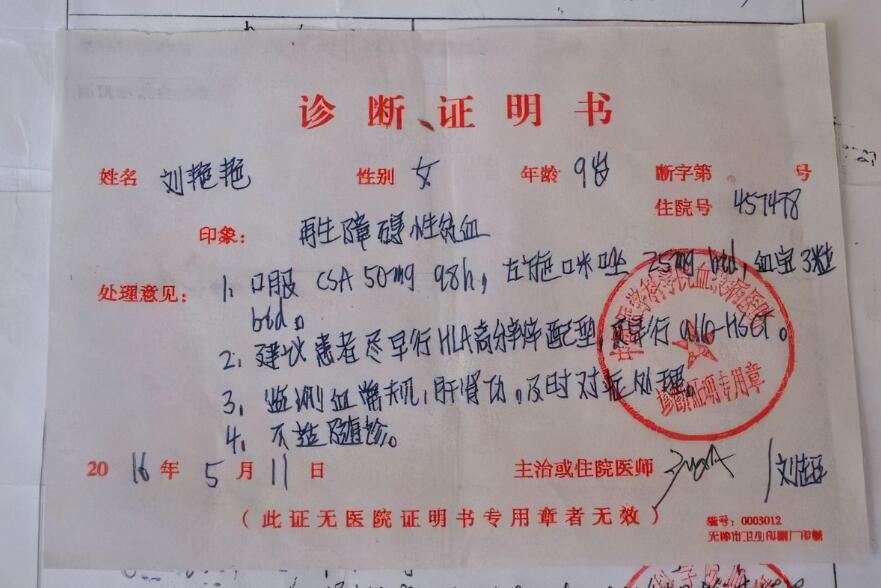 诊断证明书
姓名 刘艳艳 性别 女 年龄 9岁 断字第 号
住院号 457478
印象： 再生障碍性贫血
处理意见： 1、口服 CSA 50mg q8h, 左旋咪唑 25mg bid, 血宝3粒
bid。
2、建议患者尽早行HLA高分辨配型, 尽早行 allo-HSCT。
3、监测血常规, 肝肾功, 及时对症处理。
4、不适随诊。
2016年5月11日 主治或住院医师
（此证无医院证明书专用章者无效）
编号：0003012
无锡市卫生印刷厂印制
诊断证明专用章